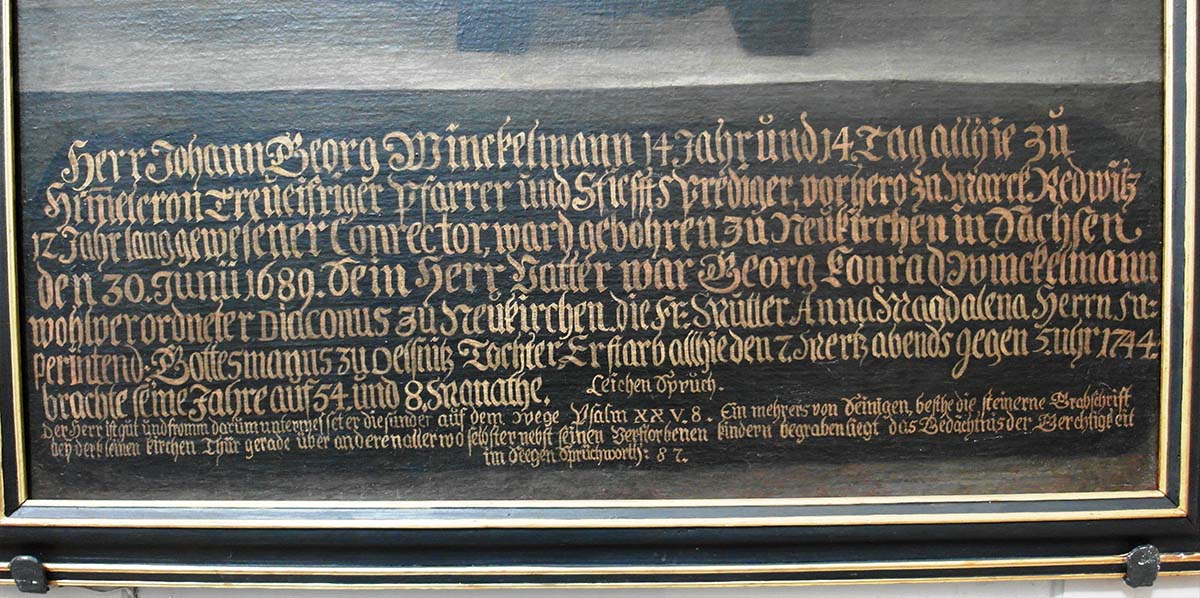 Herr Johann Georg Winckelmann 14 Jahr und 14. Tag allhie zu
Him̅elcron Treueifriger Pfarrer und Stiffts Prediger, vorhero zu Marck Redwitz
12 Jahr lang gewesener Conrector, ward gebohren zu Neukirchen in Sachsen
den 30. Junii 1689. Sein Herr Vatter war Georg Conrad Winckelmann
wohlverordneter Diaconus zu Neukirchen. die Fr: Mutter Anna Magdalena Herrn Su-
perintend: Gottesmanns zu Tochter. Er starb allhie den 7. Mertz abends gegen 5. uhr 1744.
brachte seine Jahre auf 54 und 8. Monathe. Leichen Spruch.
Der Herr ist gut und fromm darum unterweiset er die sünder auf dem Wege Psalm XXV. 8. Ein mehrers von Seinigen, besihe die steinerne Grabschrift
bey der kleinen Kirchen Thür gerade über an deren aller wo selbst er nebst seinen Verstorbenen kindern begraben liegt das Gedächtnus der Gerechtigkeit
im Seegen Sprüchworth: 87.